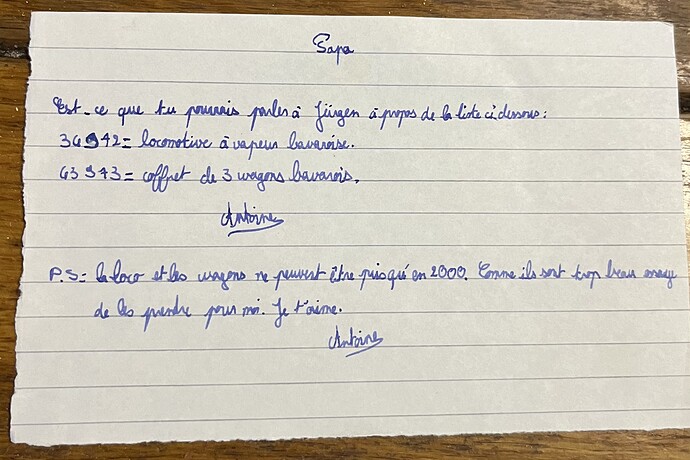 Papa
Est-ce que tu pourrais parler à Jürgen à propos de la liste ci dessous :
36942 = locomotive à vapeur bavaroise.
43943 = coffret de 3 wagons bavarois.
Antoine
P.S = la loco et les wagons ne peuvent être pris qué en 2000. Comme ils sont trop beau essaye
de les prendre pour moi. Je t'aime.
Antoine